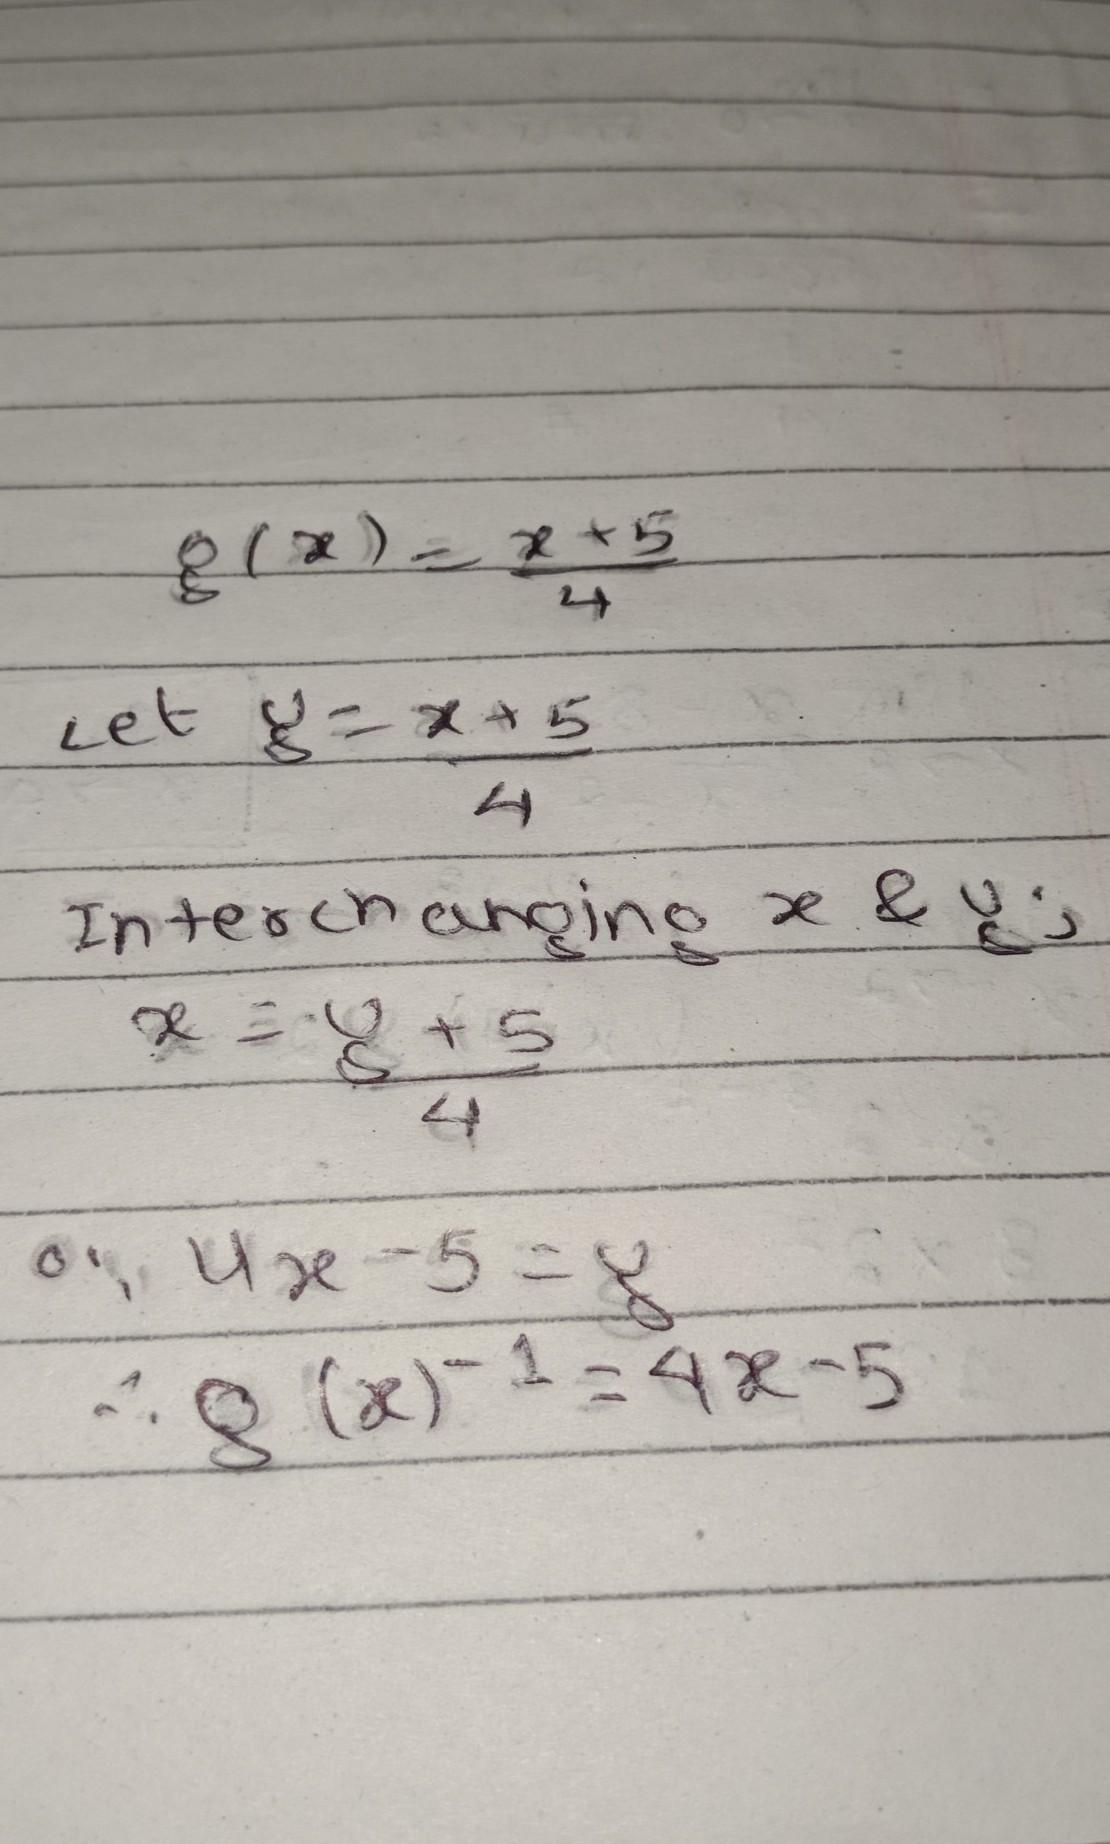 g(x) = x+5/4
Let y = x+5/4
Interchanging x & y;
x = y+5/4
or, 4x-5 = y
∴ g(x)⁻¹ = 4x-5